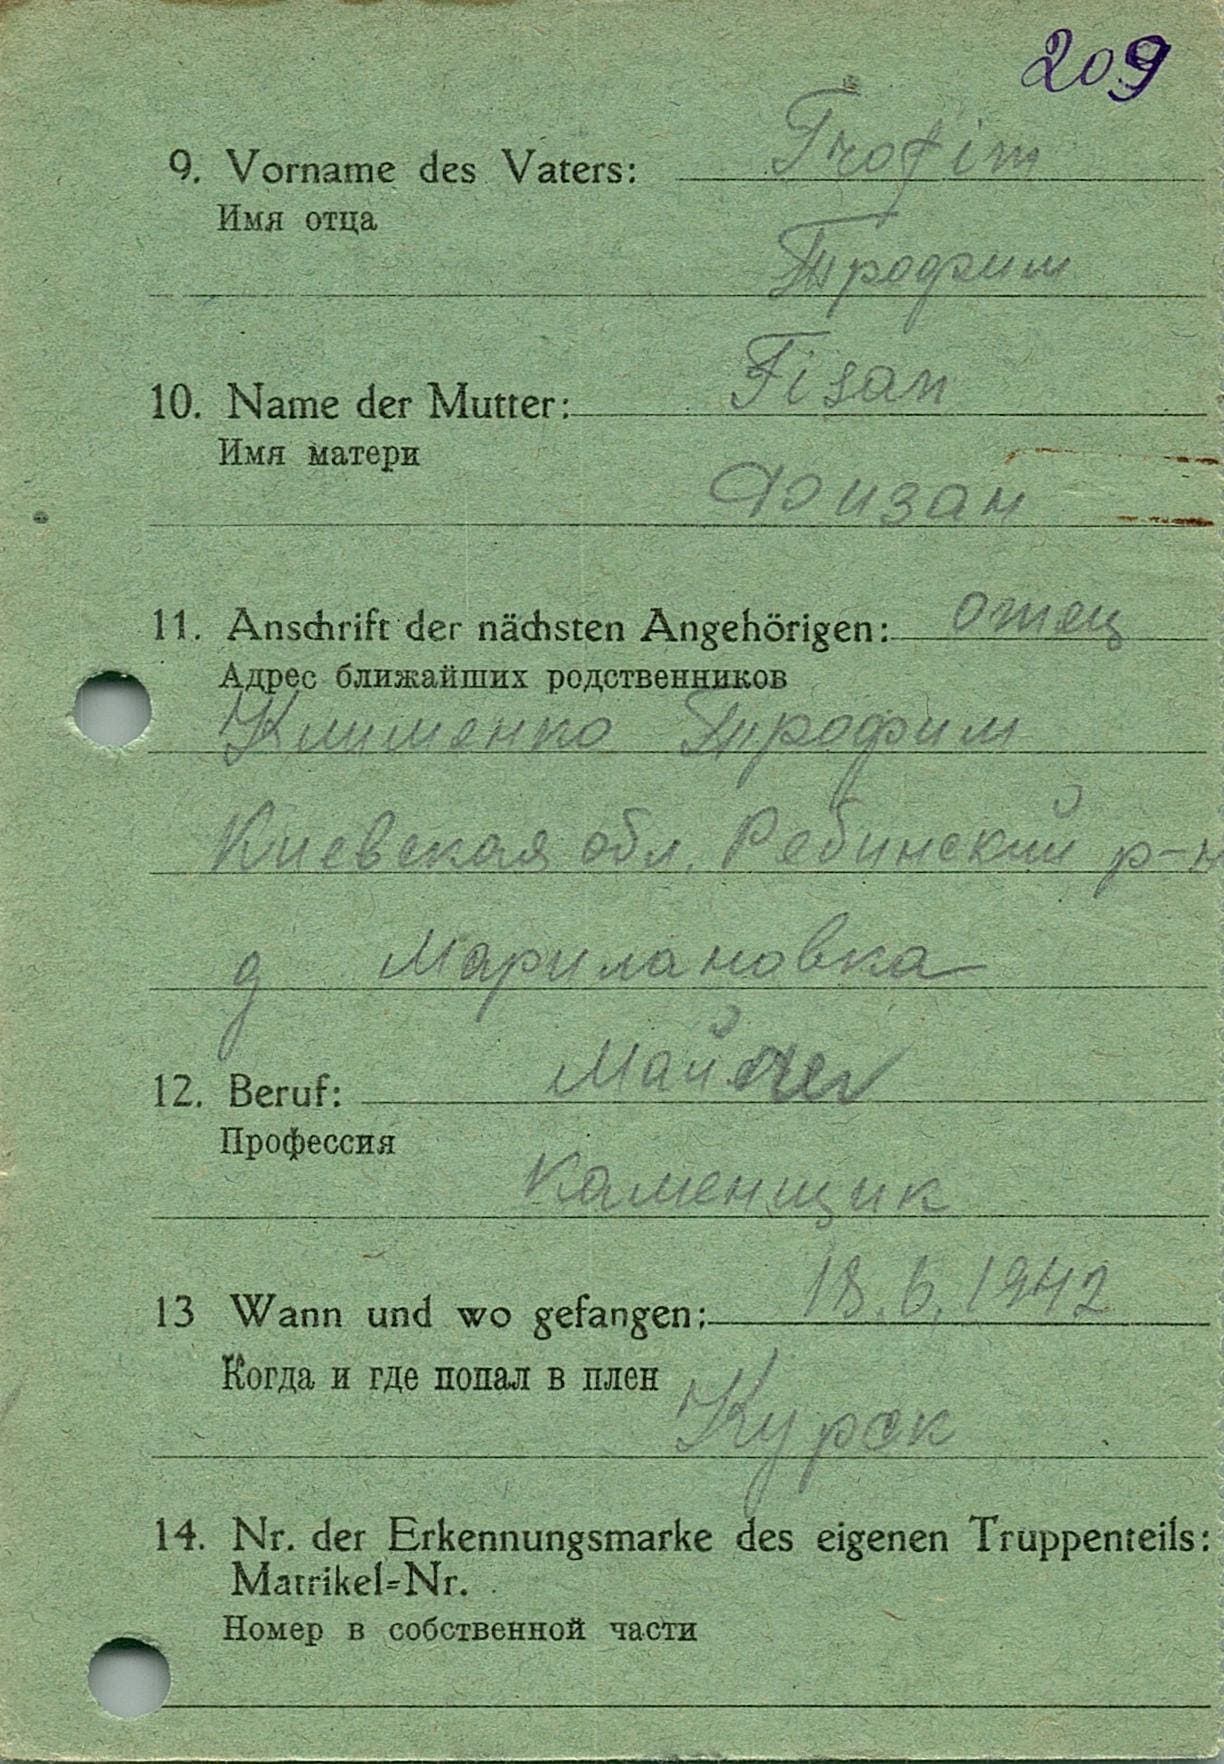 209
9. Vorname des Vaters: Trofim
Имя отца
Трофим
10. Name der Mutter: Fisan
Имя матери
Физан
11. Anschrift der nächsten Angehörigen: отец
Адрес ближайших родственников
Клименко Трофим
Киевская обл. Ребинский р-н
д Марилановка
12. Beruf:
Профессия
Каменщик
13 Wann und wo gefangen: 18.6.1942
Когда и где попал в плен
Курск
14. Nr. der Erkennungsmarke des eigenen Truppenteils:
Matrikel-Nr.
Номер в собственной части